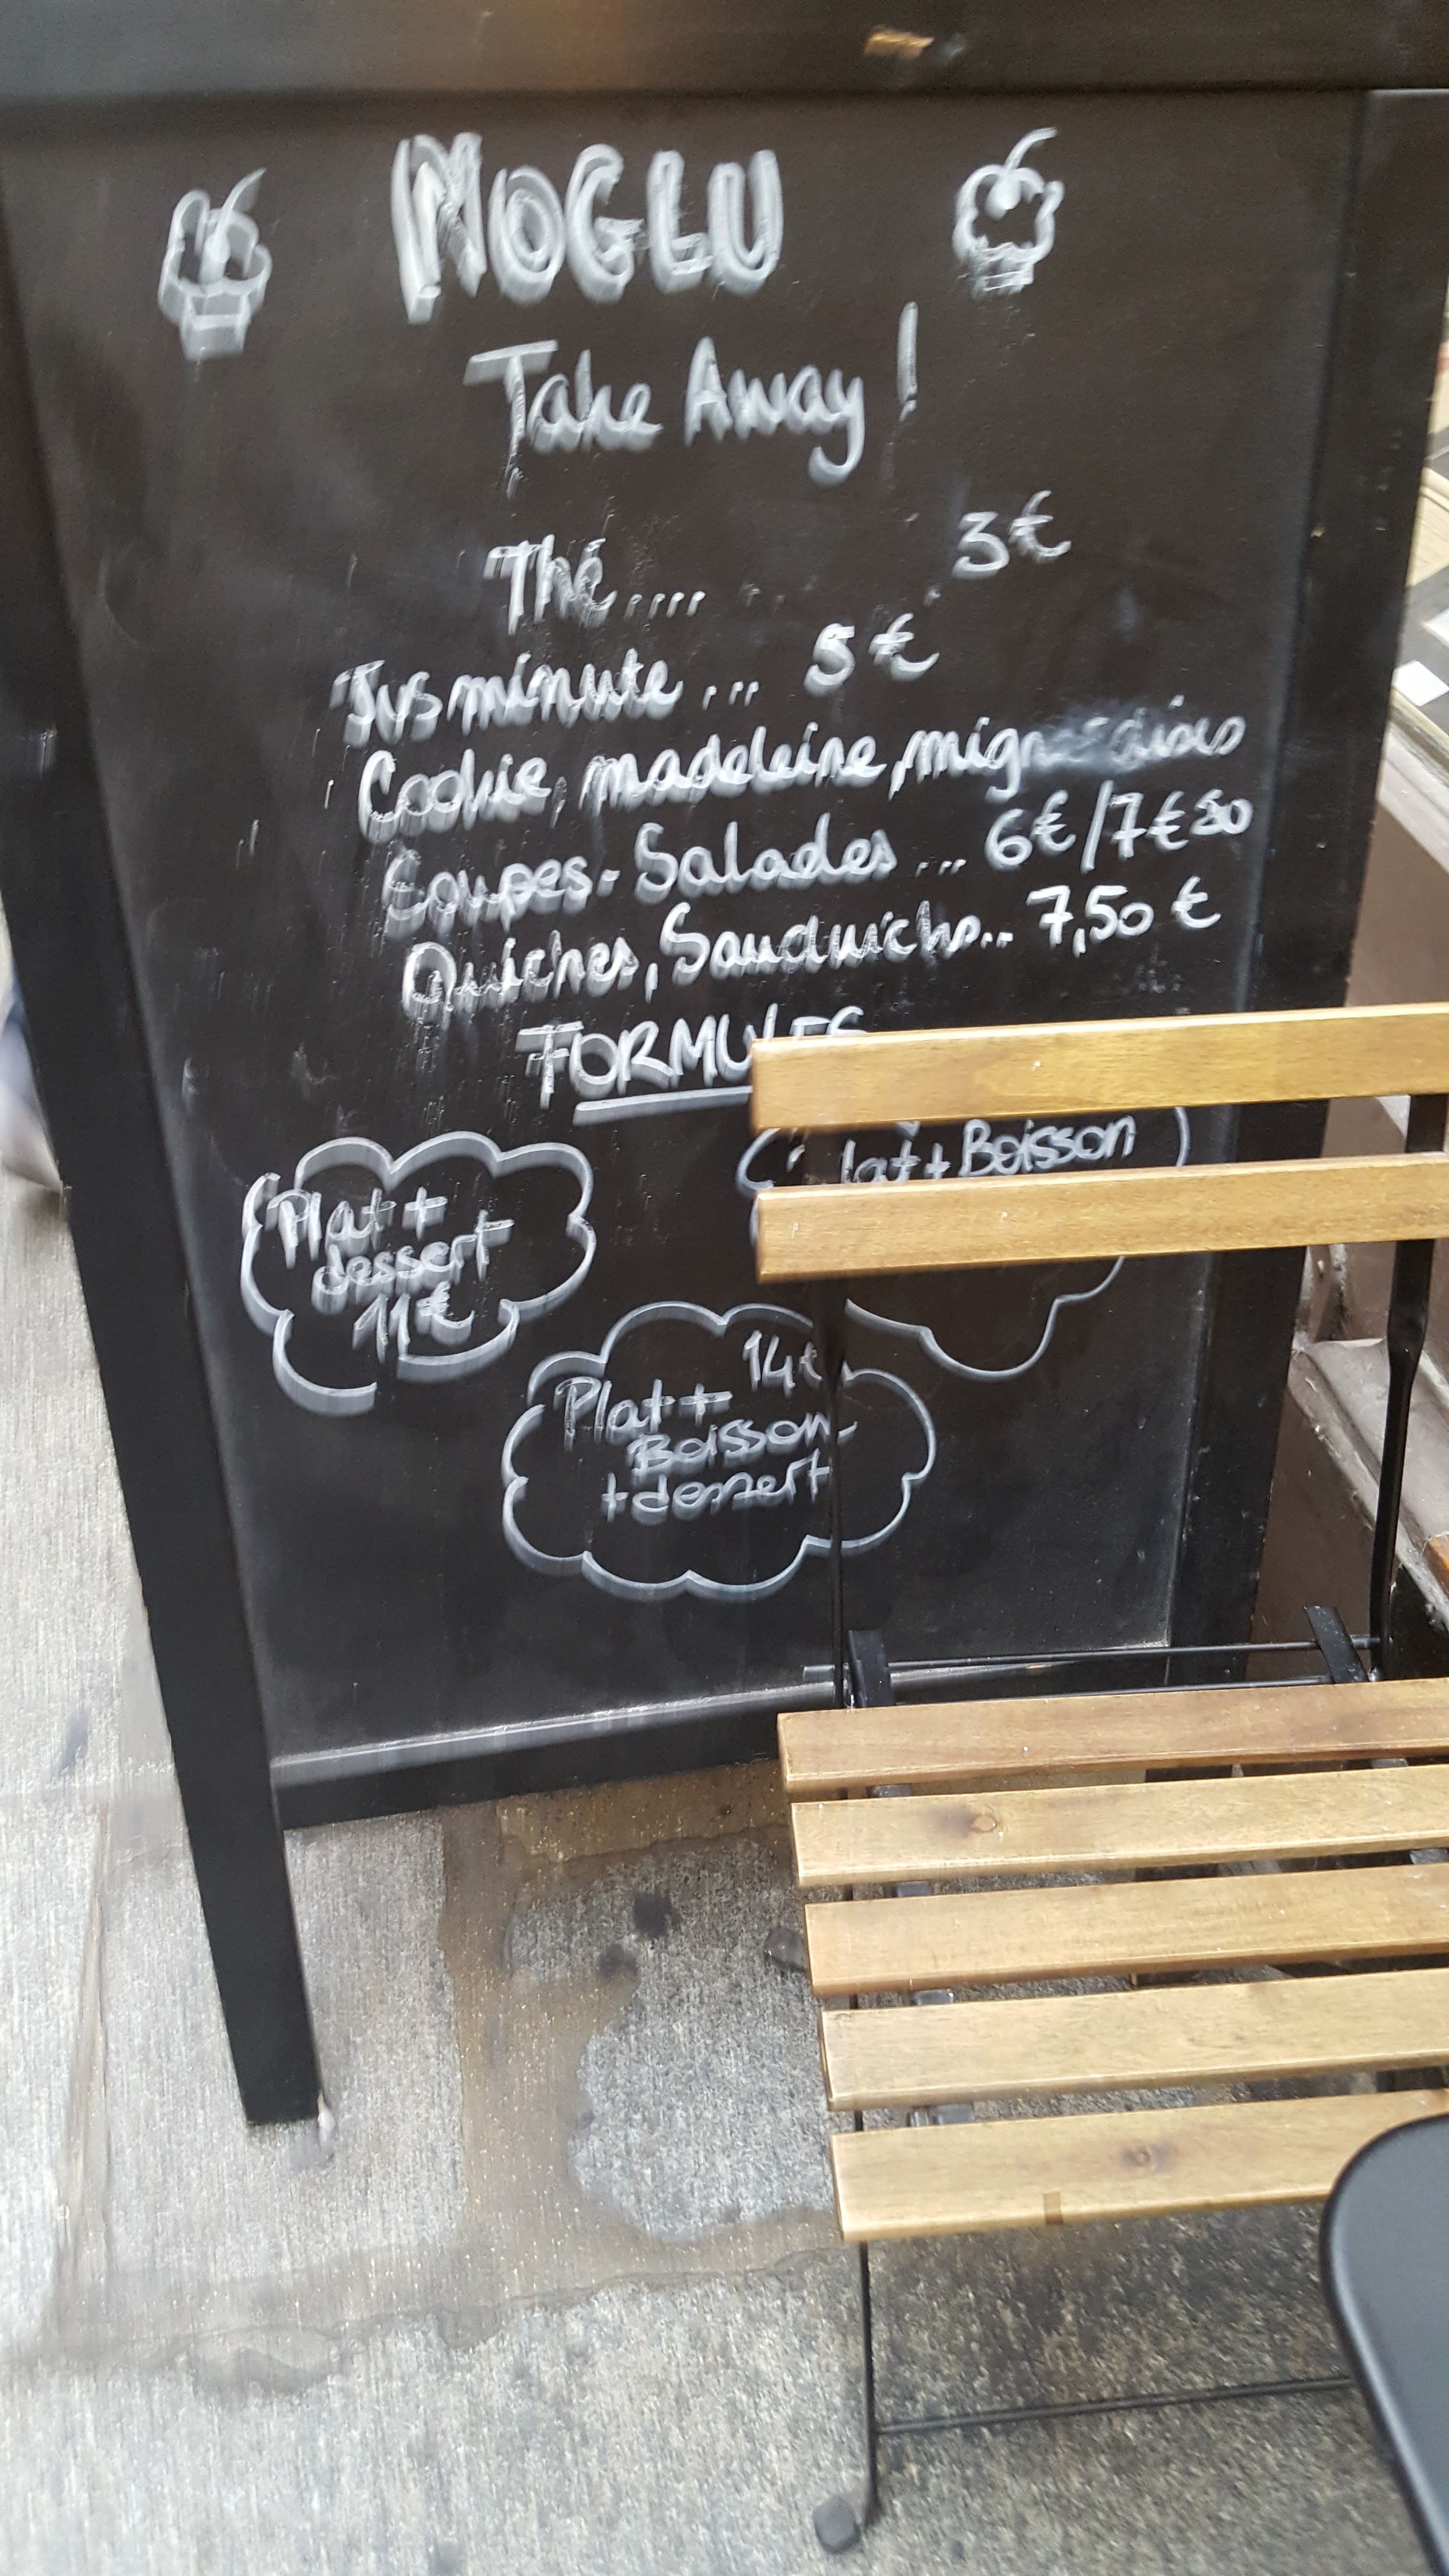 MOGLU
Take Away !
Thé.... 3€
Jus minute... 5€
Cookie, madeleine,
Soupes - Salades... 6€/7€50
Quiches, Sandwichs... 7,50 €
FORMULES
Plat + Boisson
Plat +
dessert
11€
14€
Plat +
Boisson
+ dessert